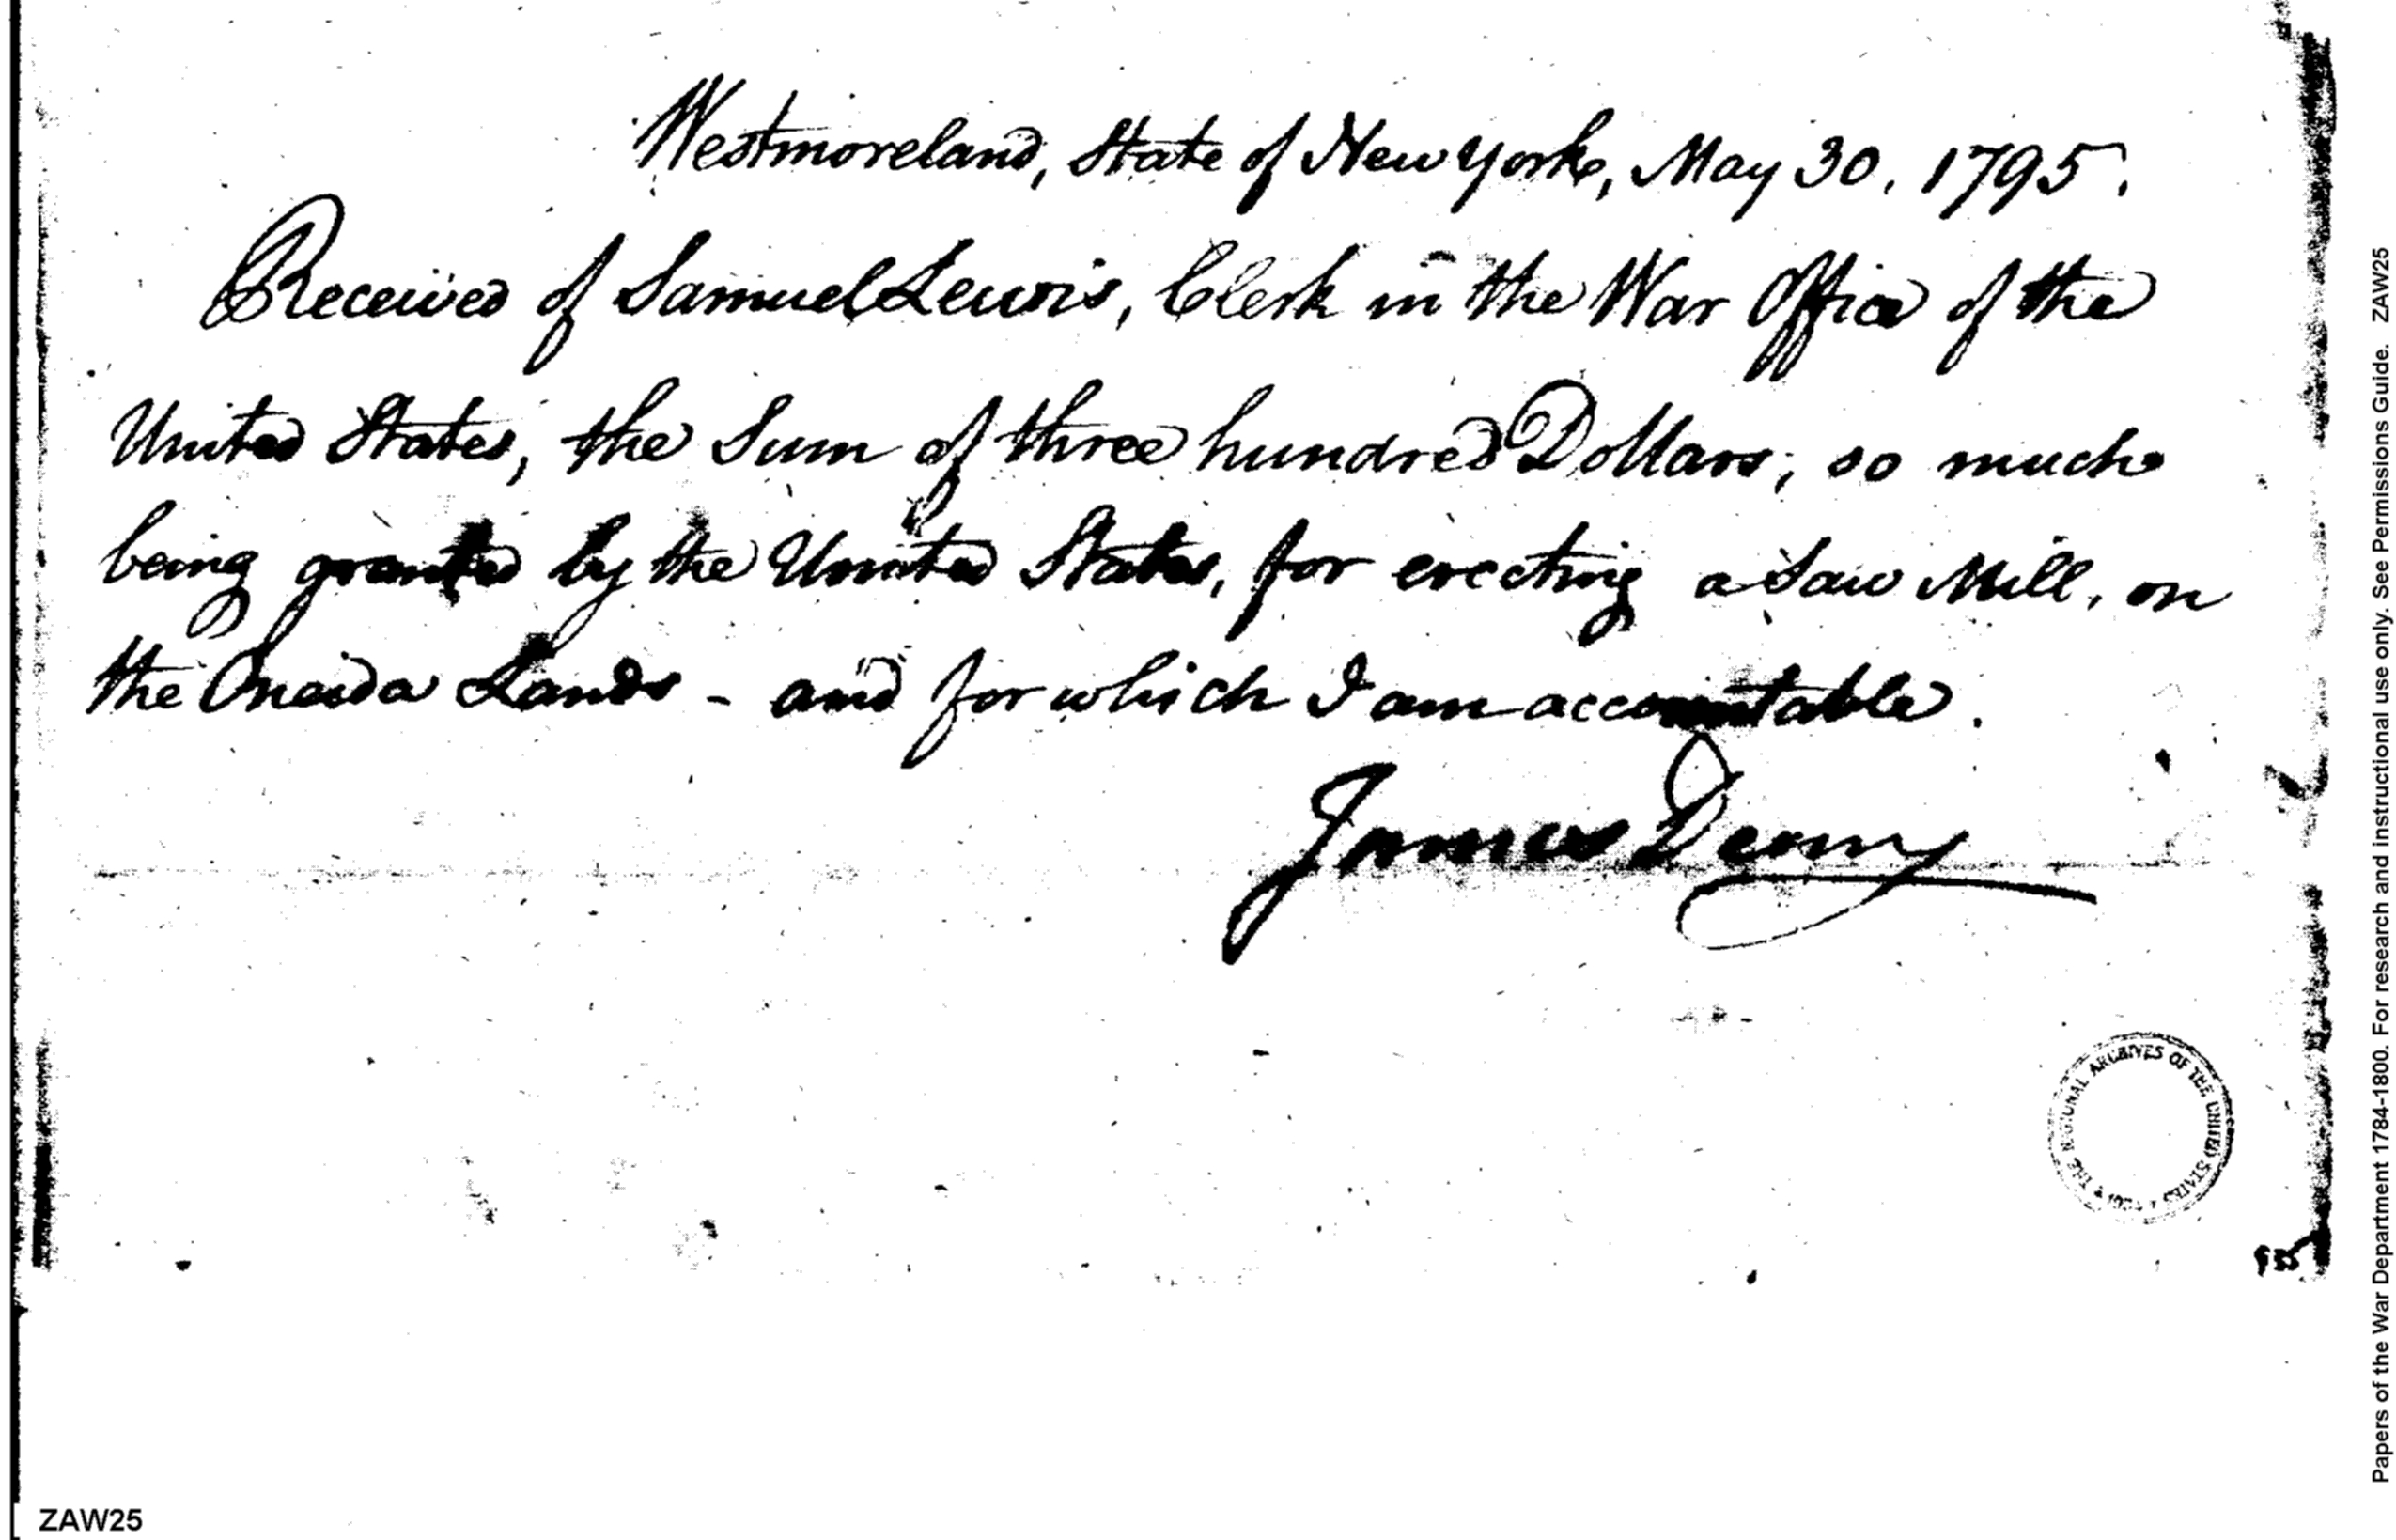 Westmoreland, State of New York, May 30. 1795.
Received of Samuel Lewis, Clerk in the War Office of the
United States, the Sum of three hundred Dollars, so much
being granted by the United States, for erecting a Saw Mill, on
the Oneida Lands - and for which I am accountable.
James Deany
THE NATIONAL ARCHIVES OF THE UNITED STATES
ZAW25
Papers of the War Department 1784-1800. For research and instructional use only. See Permissions Guide. ZAW25